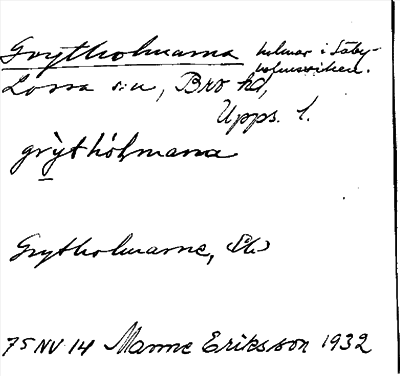 Grytholmarna holmar i Säby-
holmsviken.
Lossa sn, Bro hd,
Upps. l.
grỳthólmana
Grytholmarne,
75 NV 14 Manne Eriksson 1932